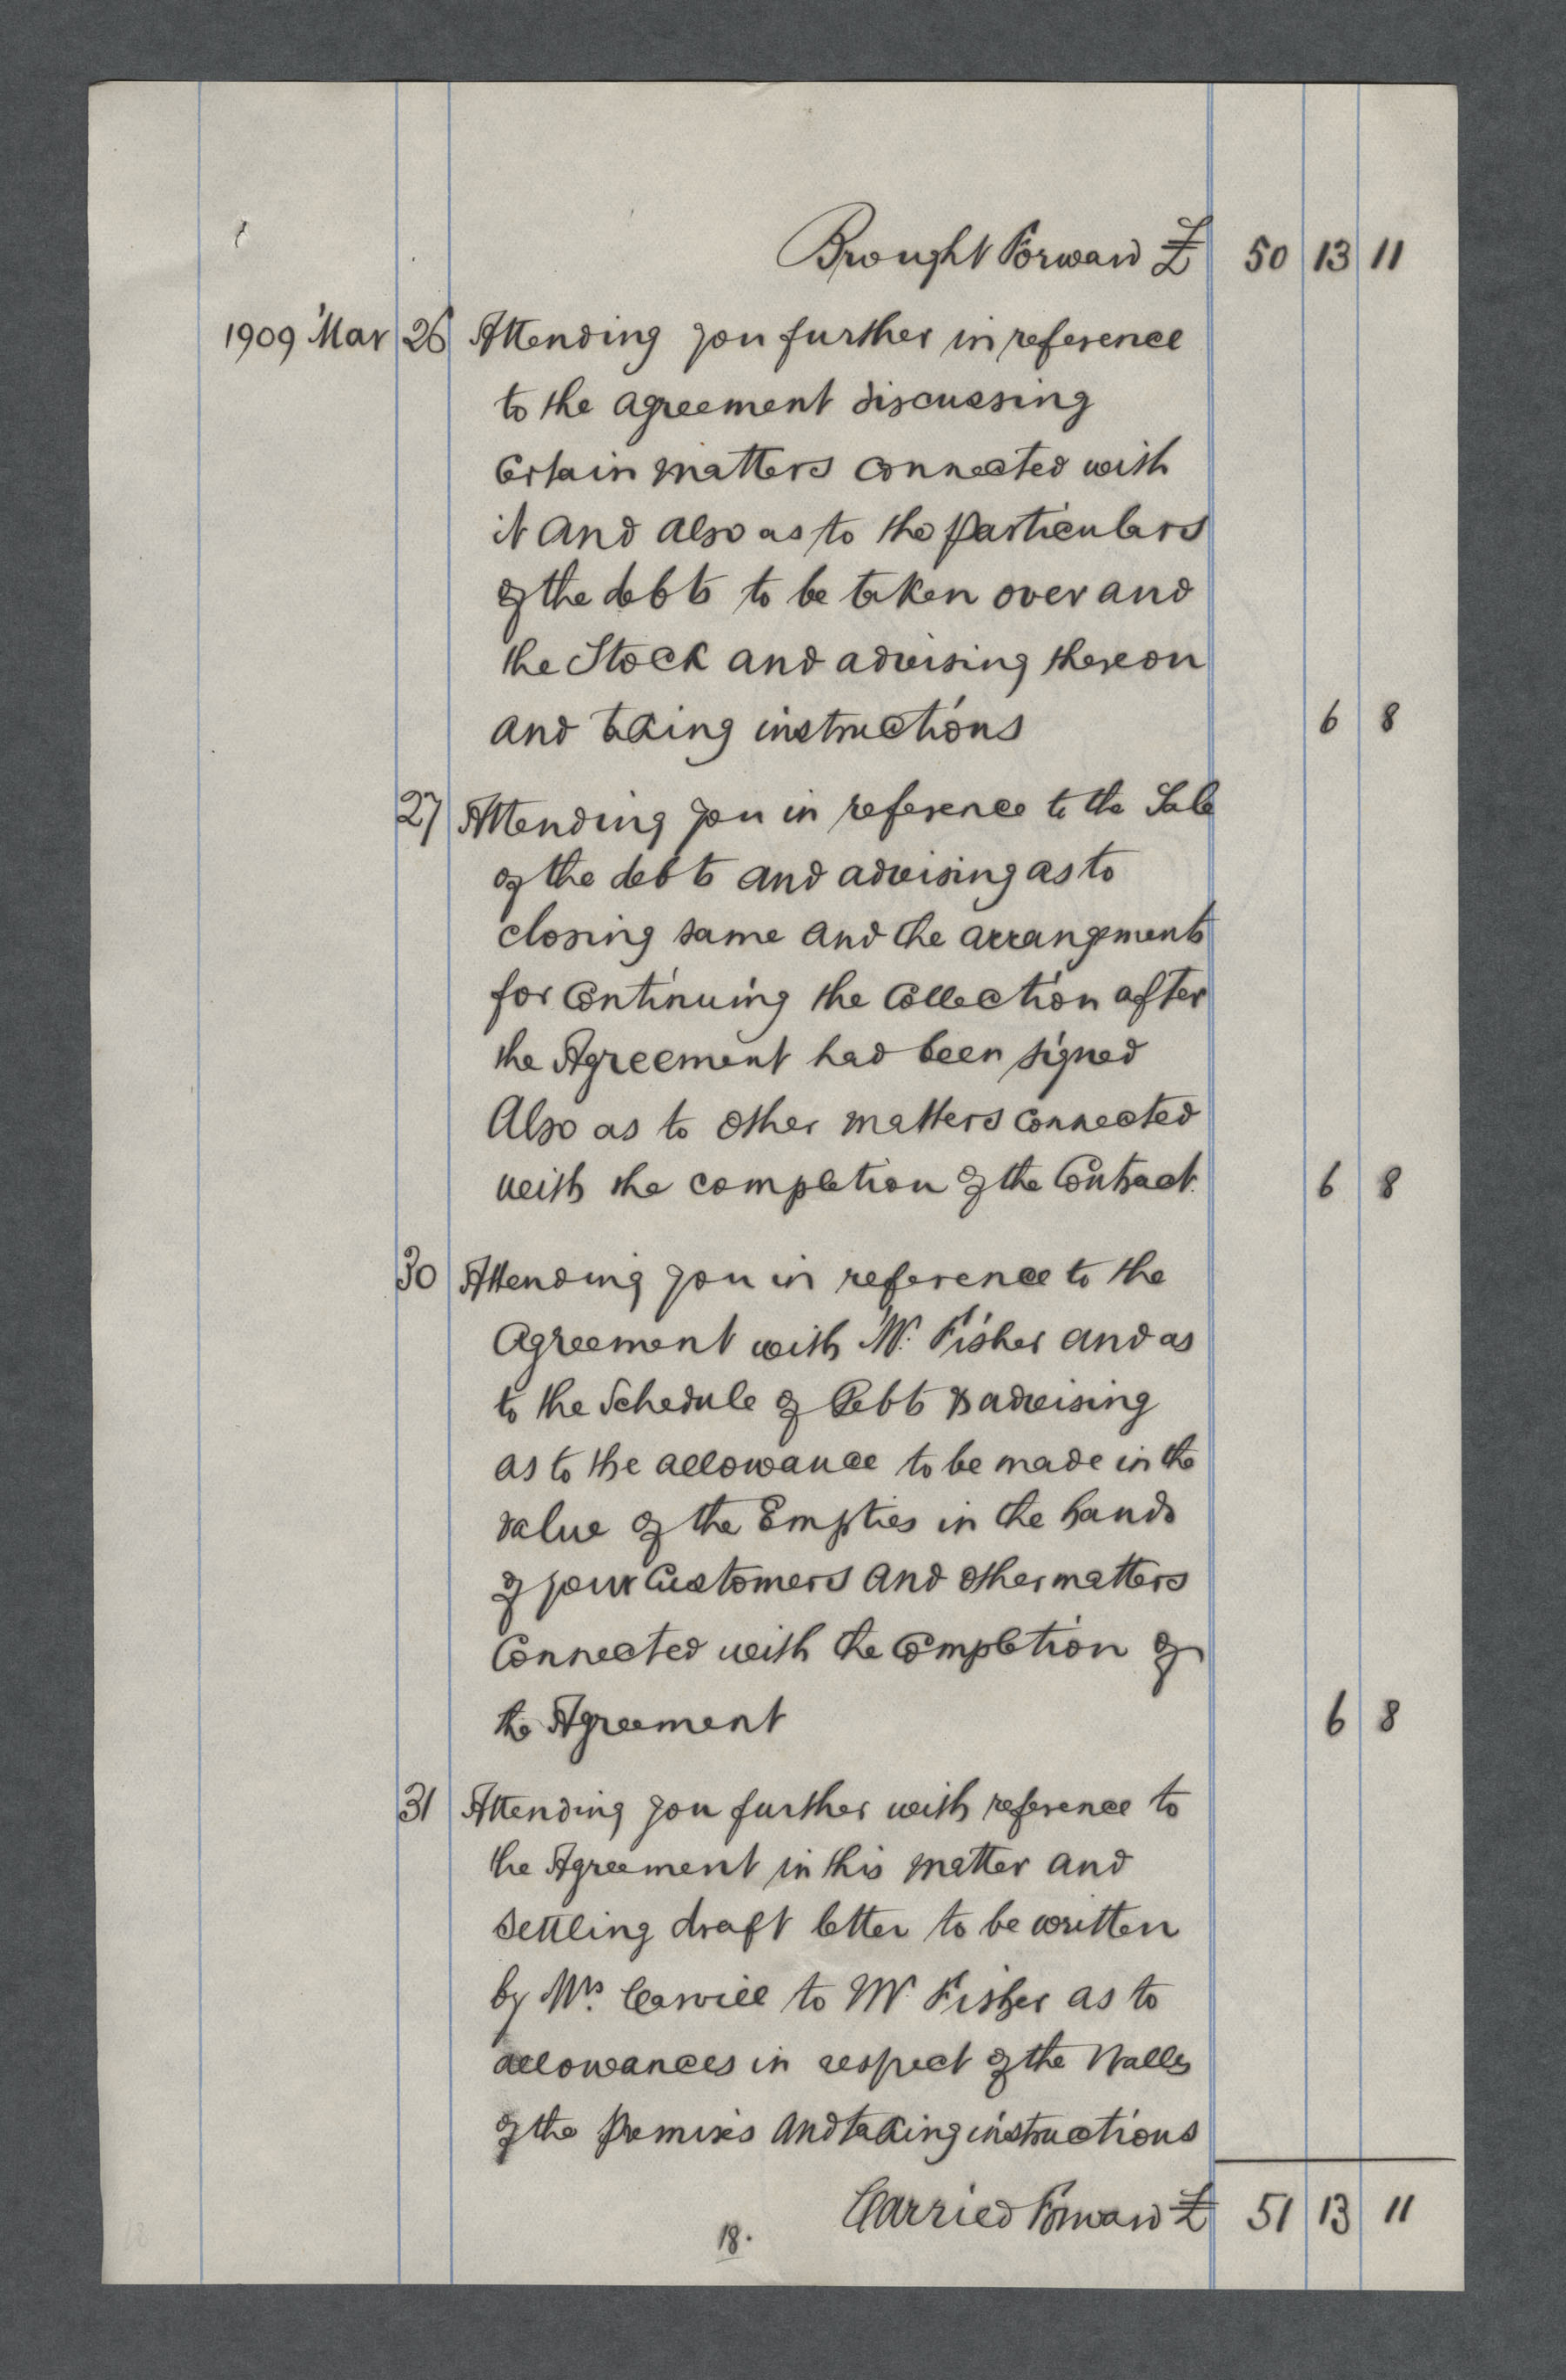 Brought Forward £ 50 13 11
1909 Mar 26 Attending you further in reference
to the agreement discussing
Certain matters connected with
it and also as to the particulars
of the debts to be taken over and
the Stock and advising thereon
and taking instructions 6 8
27 Attending you in reference to the Sale
of the debts and advising as to
closing same and the arrangements
for Continuing the Collection after
the Agreement had been signed
Also as to other matters connected
with the completion of the Contract. 6 8
30 Attending you in reference to the
Agreement with Mr. Fisher and as
to the Schedule of Debts & advising
as to the allowance to be made in the
value of the Empties in the hands
of your Customers and other matters
Connected with the Completion of
the Agreement 6 8
31 Attending you further with reference to
the Agreement in this matter and
settling draft letter to be written
by Mrs. to Mr Fisher as to
allowances in respect of the Walls
of the premises and taking instructions
Carried Forward £ 51 13 11
18.